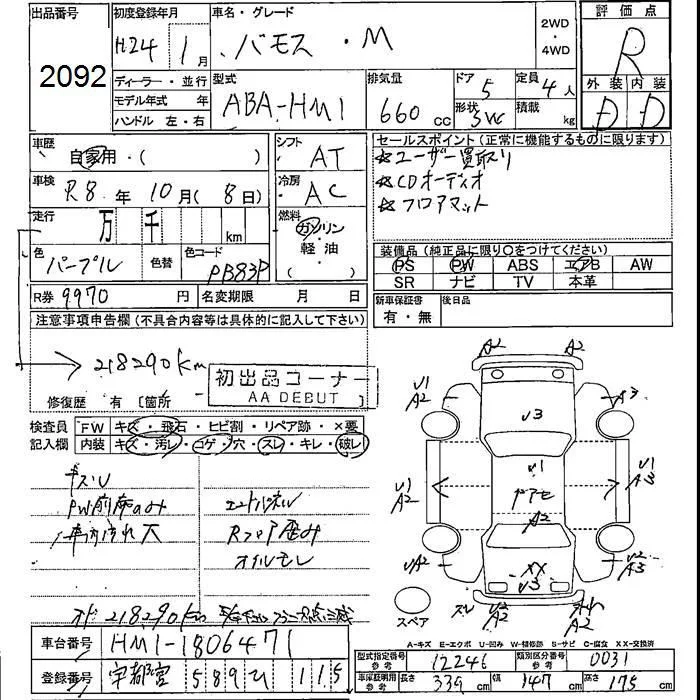 出品番号
2092
初度登録年月
H24 1月
車名・グレード
バモス・M
2WD
・
4WD
評価点
R
外装 内装
D D
ディーラー・並行
モデル年式 年
ハンドル 左・右
型式
ABA-HM1
排気量
660 cc
ドア 5
形状 5W
定員 4人
積載 kg
車歴
自家用・( )
車検 R8年 10月(8日)
走行 万 千 km
色 パープル 色替
色コード PB83P
シフト AT
冷房 AC
燃料
ガソリン
軽油
( )
R券 9970円 名変期限 月 日
セールスポイント(正常に機能するものに限ります)
☆ユーザー買取り
☆CDオーディオ
☆フロアマット
装備品(純正品に限り○をつけてください)
PS PW ABS エアB AW
SR ナビ TV 本革
新車保証書
有・無
後日品
注意事項申告欄(不具合内容等は具体的に記入して下さい)
→218290km
初出品コーナー
AA DEBUT
修復歴 有 〔箇所
検査員記入欄
FW キズ・飛石・ヒビ割・リペア跡・×要
内装 キズ・汚レ・コゲ・穴・スレ・キレ・破レ
キズU
PW前席のみ
車内汚れ大
エンドパネル
Rフロア歪み
オイルモレ
218290km
A2 A2
U1
A2
A3
U3
U1
A2
U1
ドアセ
A2
U1
A3
UA2
XX
U3
U2
A3
U2
A2
スペア
A-キズ E-エクボ U-凹み W-補修跡 S-サビ C-腐食 XX-交換済
車台番号 HM1-1806471
登録番号 宇都宮 589 ひ 115
型式指定番号 参考 12246
類別区分番号 参考 0031
車庫証明用 参考 長さ 339cm 幅 147cm 高さ 175cm